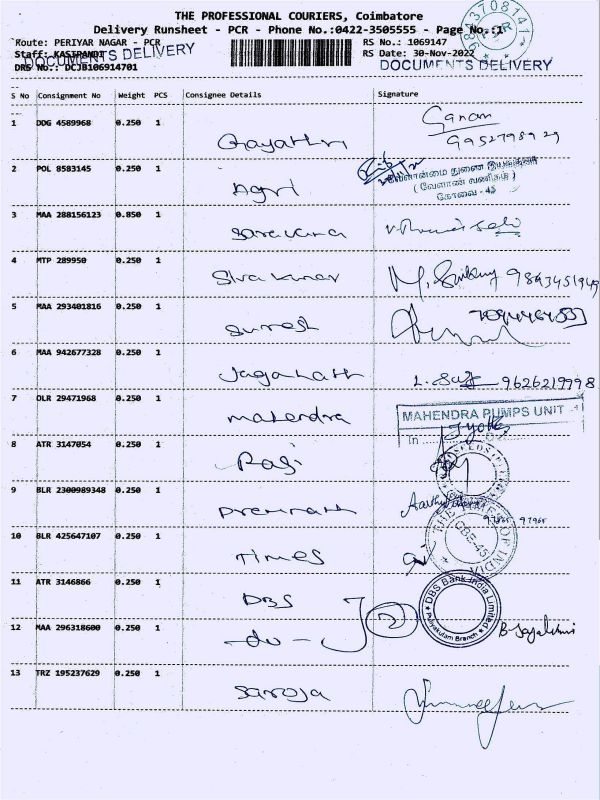 THE PROFESSIONAL COURIERS, Coimbatore
Delivery Runsheet - PCR - Phone No.:0422-3505555 - Page No.:1
Route: PERIYAR NAGAR - PCR
RS No.: 1069147
Staff: KASIPANDI
RS Date: 30-Nov-2022
DOCUMENTS DELIVERY
DOCUMENTS DELIVERY
DRS No.: DCJB106914701
S No Consignment No Weight PCS Consignee Details Signature
1 DDG 4589968 0.250 1 Gayathri Ganam
9952798929
2 POL 8583145 0.250 1 Agri
வேளாண்மை துணை இயக்குனர்
( வேளாண் வணிகம் )
கோவை - 43
3 MAA 288156123 0.850 1 Saravana
4 MTP 289950 0.250 1 Siva kumar
5 MAA 293401816 0.250 1 Suresh
6 MAA 942677328 0.250 1 Jaganath 9626219998
7 OLR 29471968 0.250 1 mahendra
MAHENDRA PUMPS UNIT
8 ATR 3147054 0.250 1 Raji
9 BLR 2300989348 0.250 1 Premnath
10 BLR 425647107 0.250 1 Times
THE TIMES OF INDIA
CBE-45
11 ATR 3146866 0.250 1 DBS
DBS Bank India Limited
Puliakulam Branch
12 MAA 296318600 0.250 1 -do- 2 B. Jayalaxmi
13 TRZ 195237629 0.250 1 Saroja